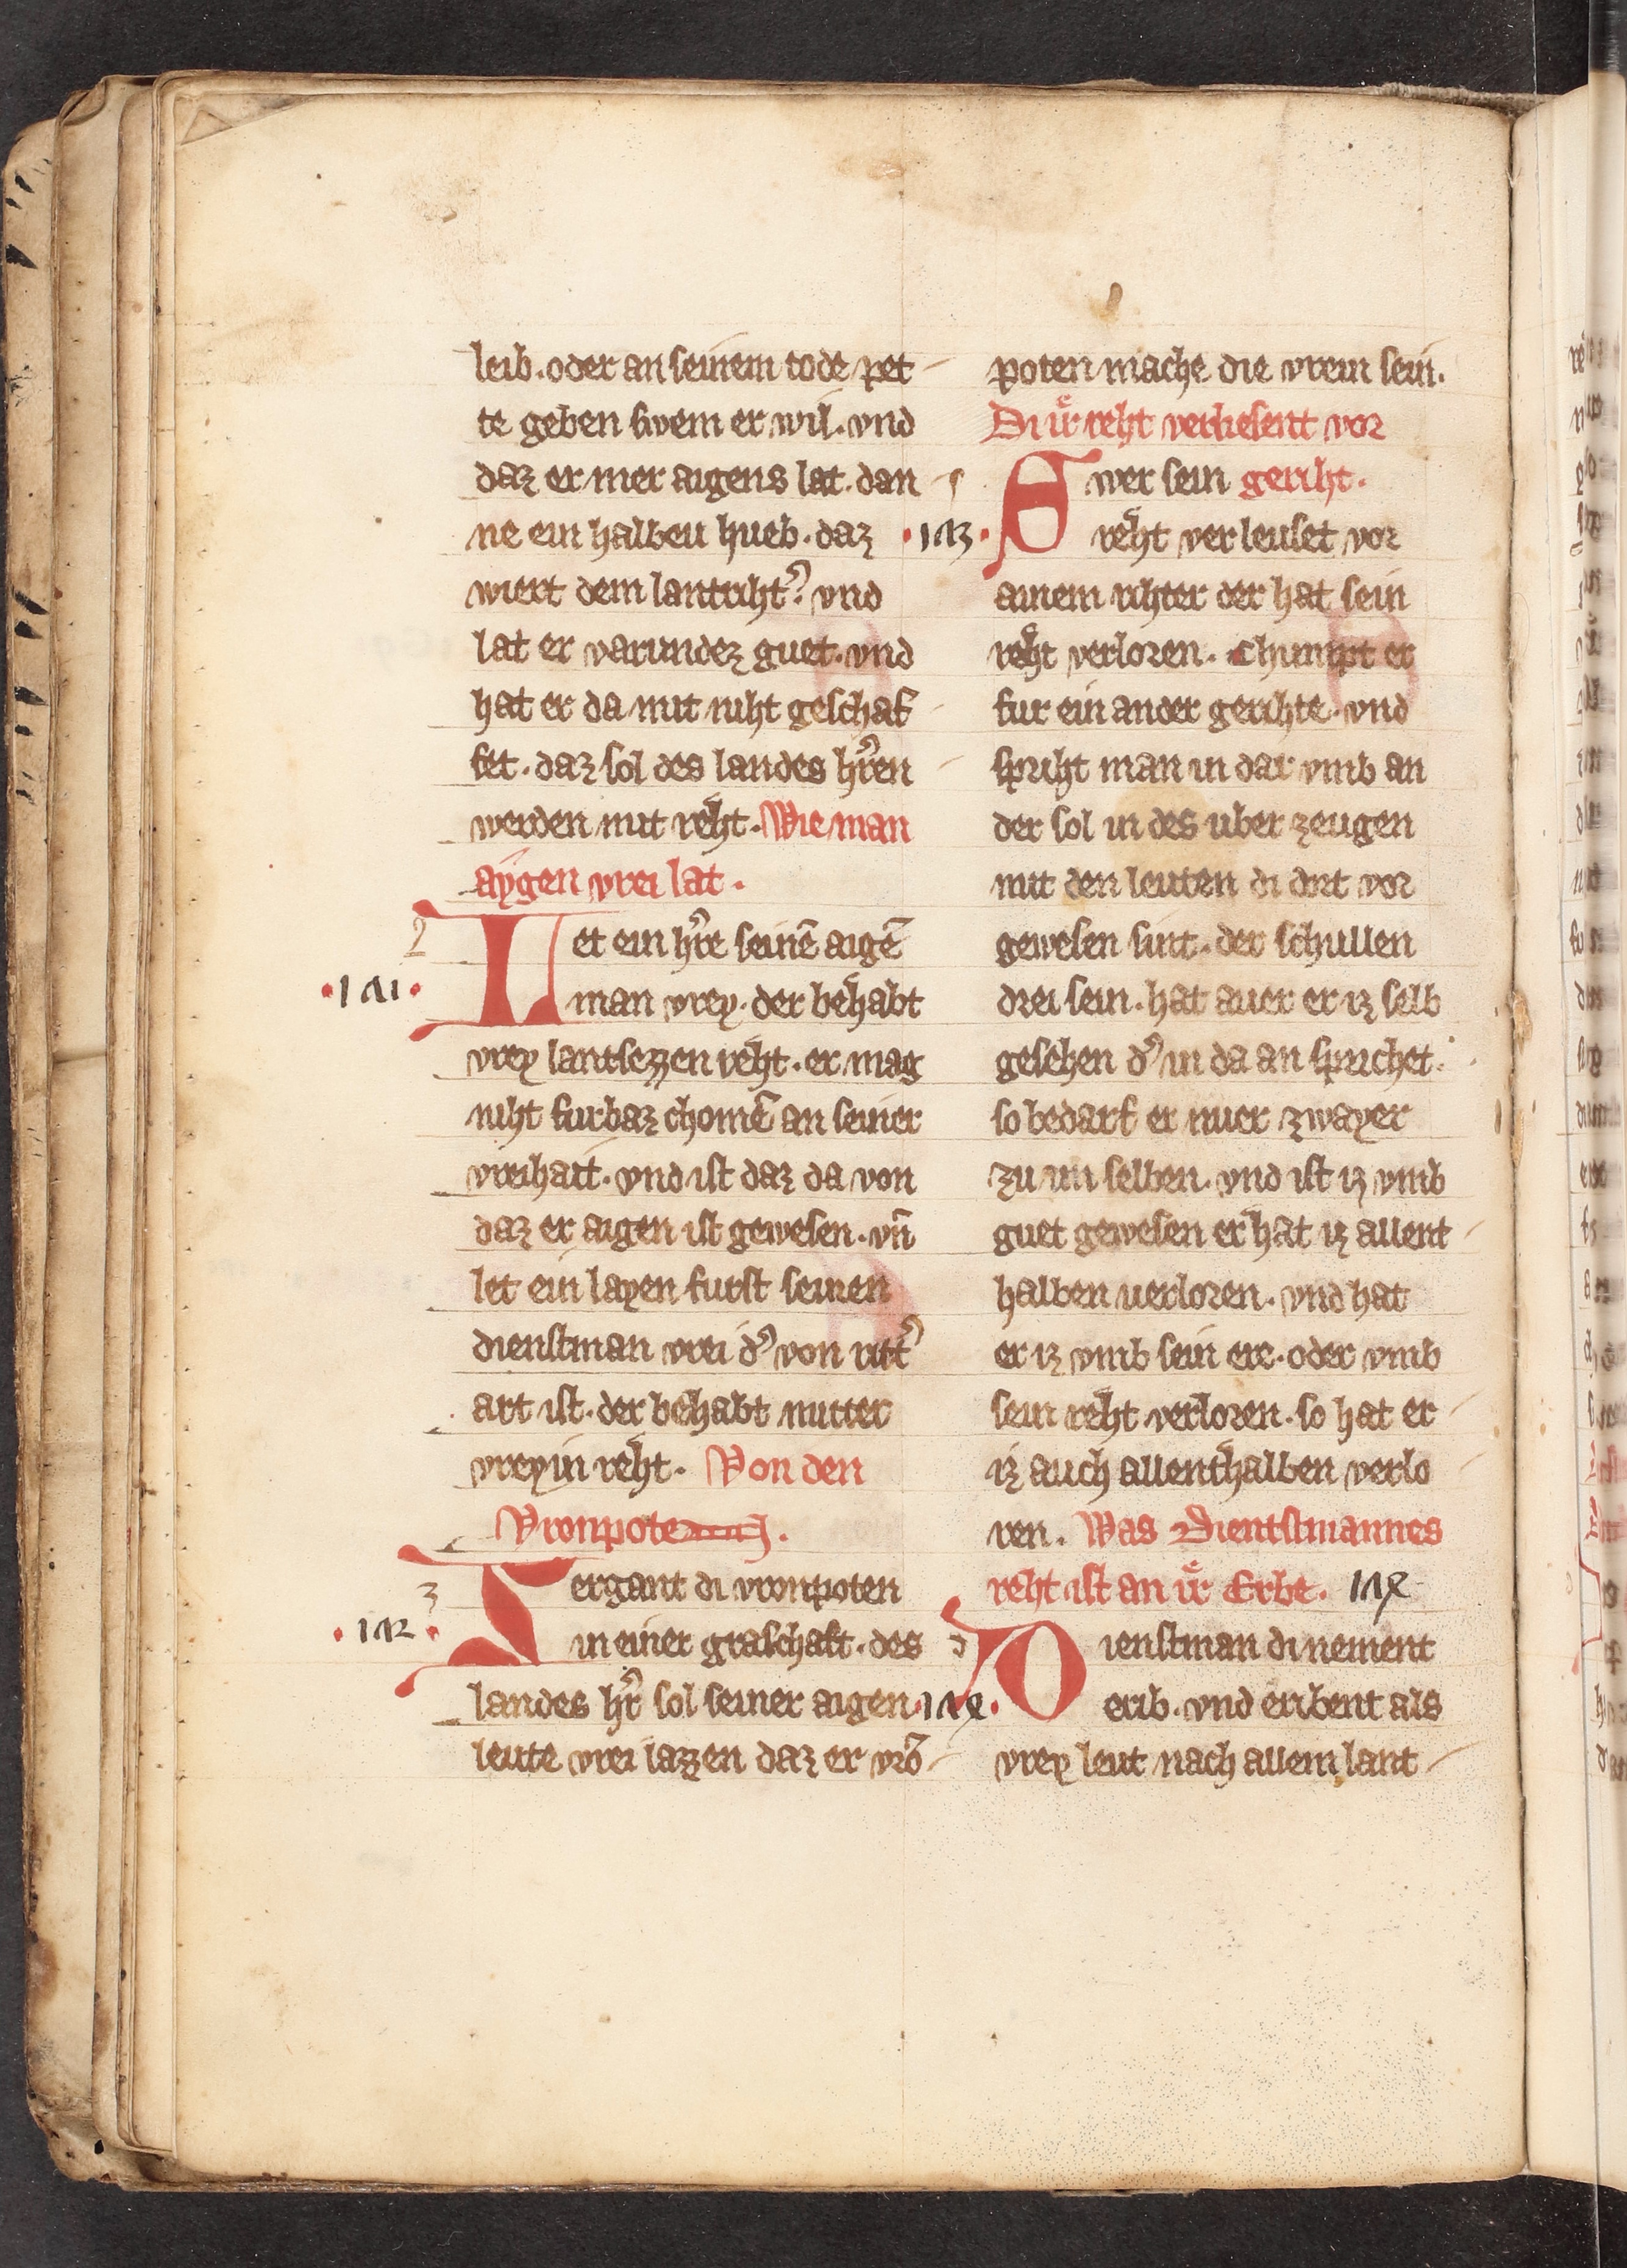 leib · oder an seinem tode pet-
te geben swem er wil · vnd
daz er mer aigens lat · dan
ne ein halbeu hueb · daz
wiert dem lantriht᾽ · vnd
lat er varundez guet · vnd
hat er da mit niht geschaf-
fet · daz sol des landes hr᾽ren
werden mit reht · Wie man
aygen vrei lat ·
Let ein hr᾽re seinē aigē
· 141 ·
man vrey · der behabt
vrey lantsezzen reht · er mag
niht furbaz chomē an seiner
vreihait · vnd ist daz da von
daz er aigen ist gewesen · vn̄
let ein layen furst seinen
dienstman vrei d᾽ von ritt᾽
art ist · der behabt mitter
vreyin reht · Von den
Vronpoten ·
Zergant di vronpoten
· 142 ·
in einer grafschaft · des
landes hr᾽ sol seiner aigen
leute vrei lazzen daz er vrō-
poten mache die vrein sein ·
Di ir reht verliesent vor
Swer sein geriht ·
· 143 ·
reht verleuset vor
ainem rihter der hat sein
reht verloren · Chumpt er
fur ein ander gerihte · vnd
spriht man in dar vmb an
der sol in des uber zeugen
mit den leuten di dort vor
gewesen sint · der schullen
drei sein · hat auer er iz selb
gesehen d᾽ in da an sprichet ·
so bedarf er nuer zwayer
zu im selben · vnd ist iz vmb
guet gewesen er hat iz allent-
halben verloren · vnd hat
er iz vmb sein ere · oder vmb
sein reht verloren · so hat er
iz auch allenthalben verlo-
ren · Was Dientstmannes
reht ist an ir Erbe · 144
Dienstman di nement
· 144 ·
erib · vnd eribent als
vrey leut nach allem lant-